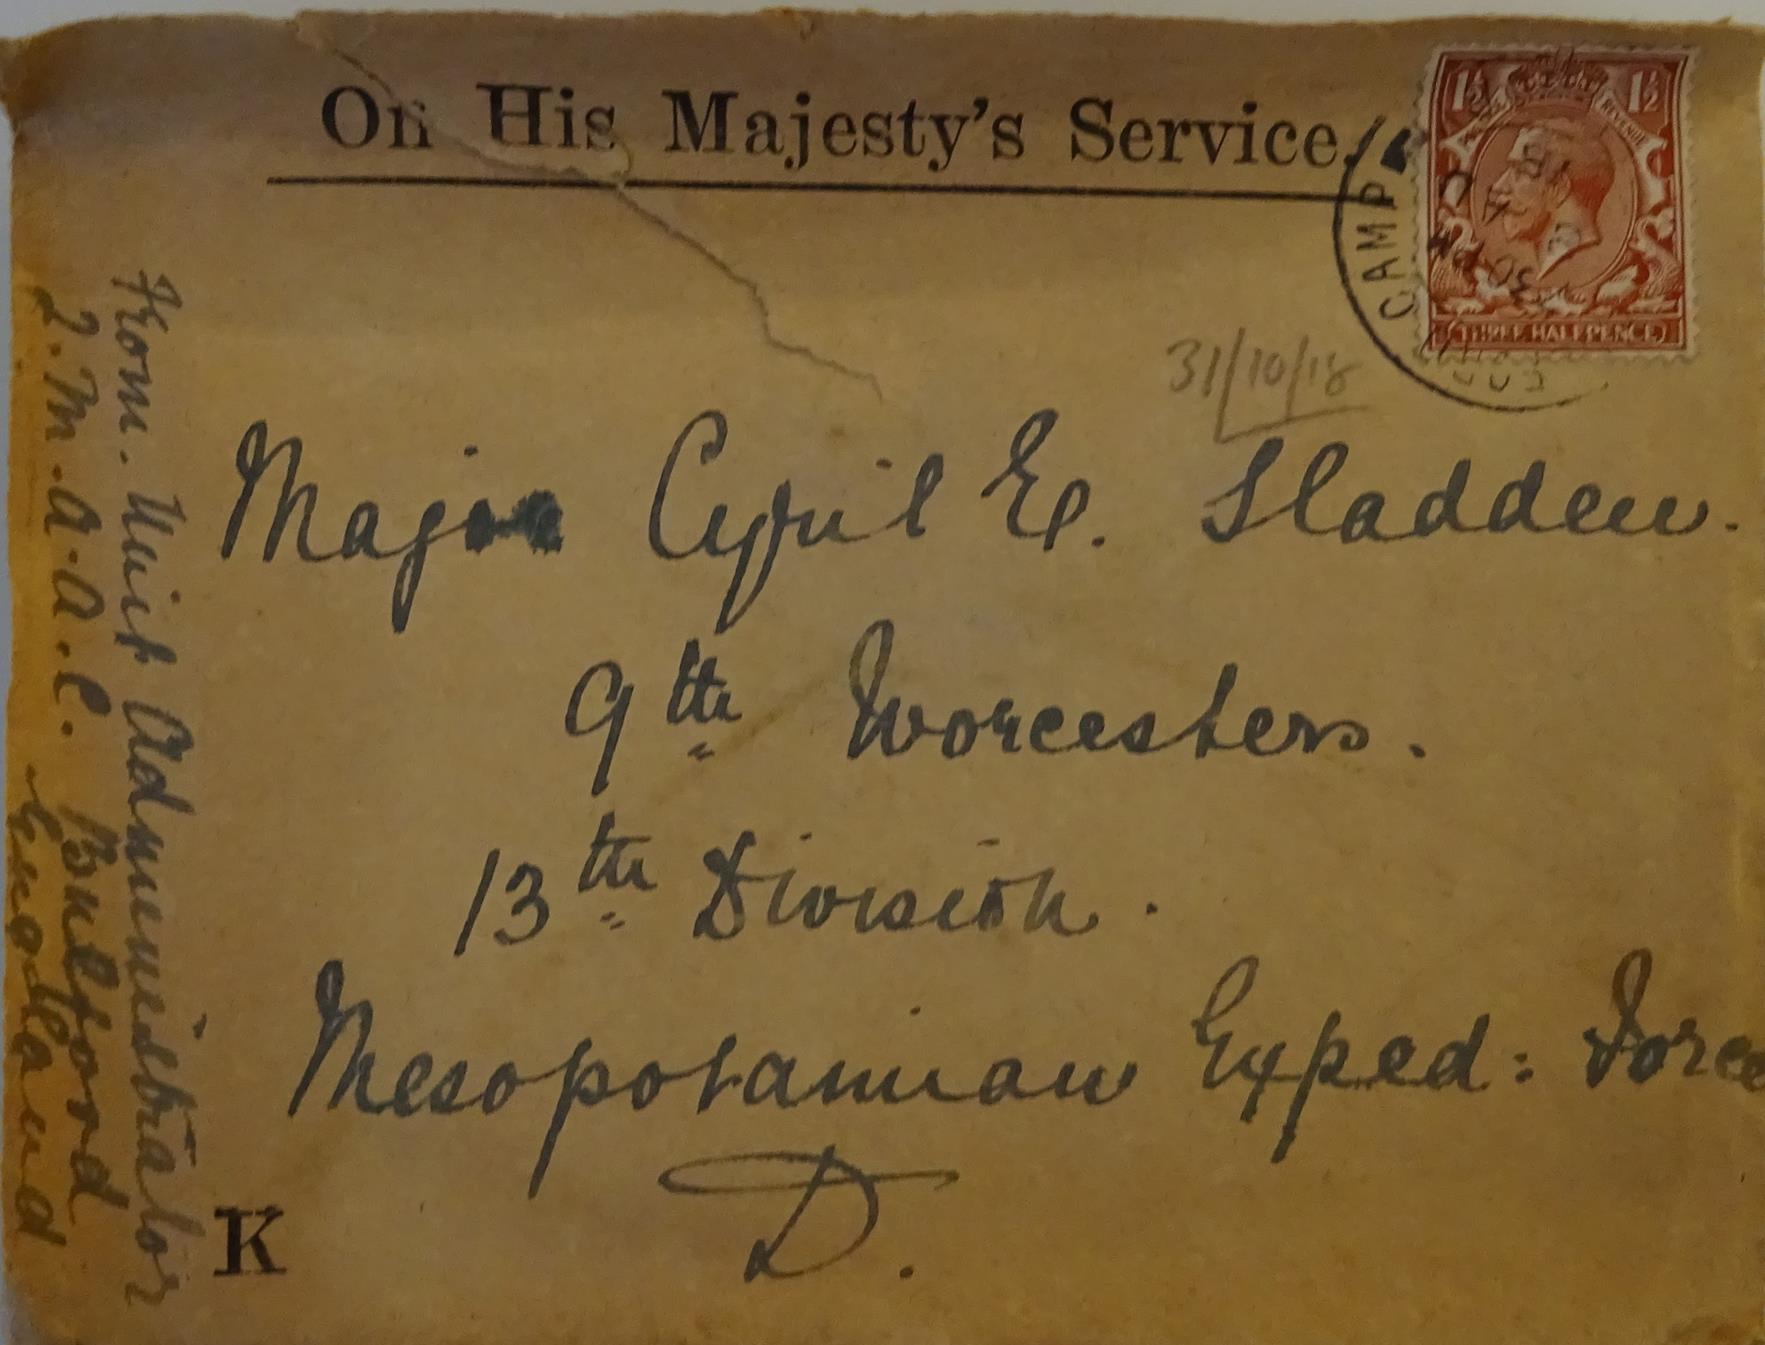 On His Majesty's Service.
1½ 1½
POSTAGE REVENUE
THREE HALFPENCE
CAMP
30
31/10/18
Major Cyril E. Sladden.
9th Worcesters.
13th Division.
Mesopotamian Exped: Force
D.
K
From. Unit Administrator
Q.M.A.A.C. Bulford
England